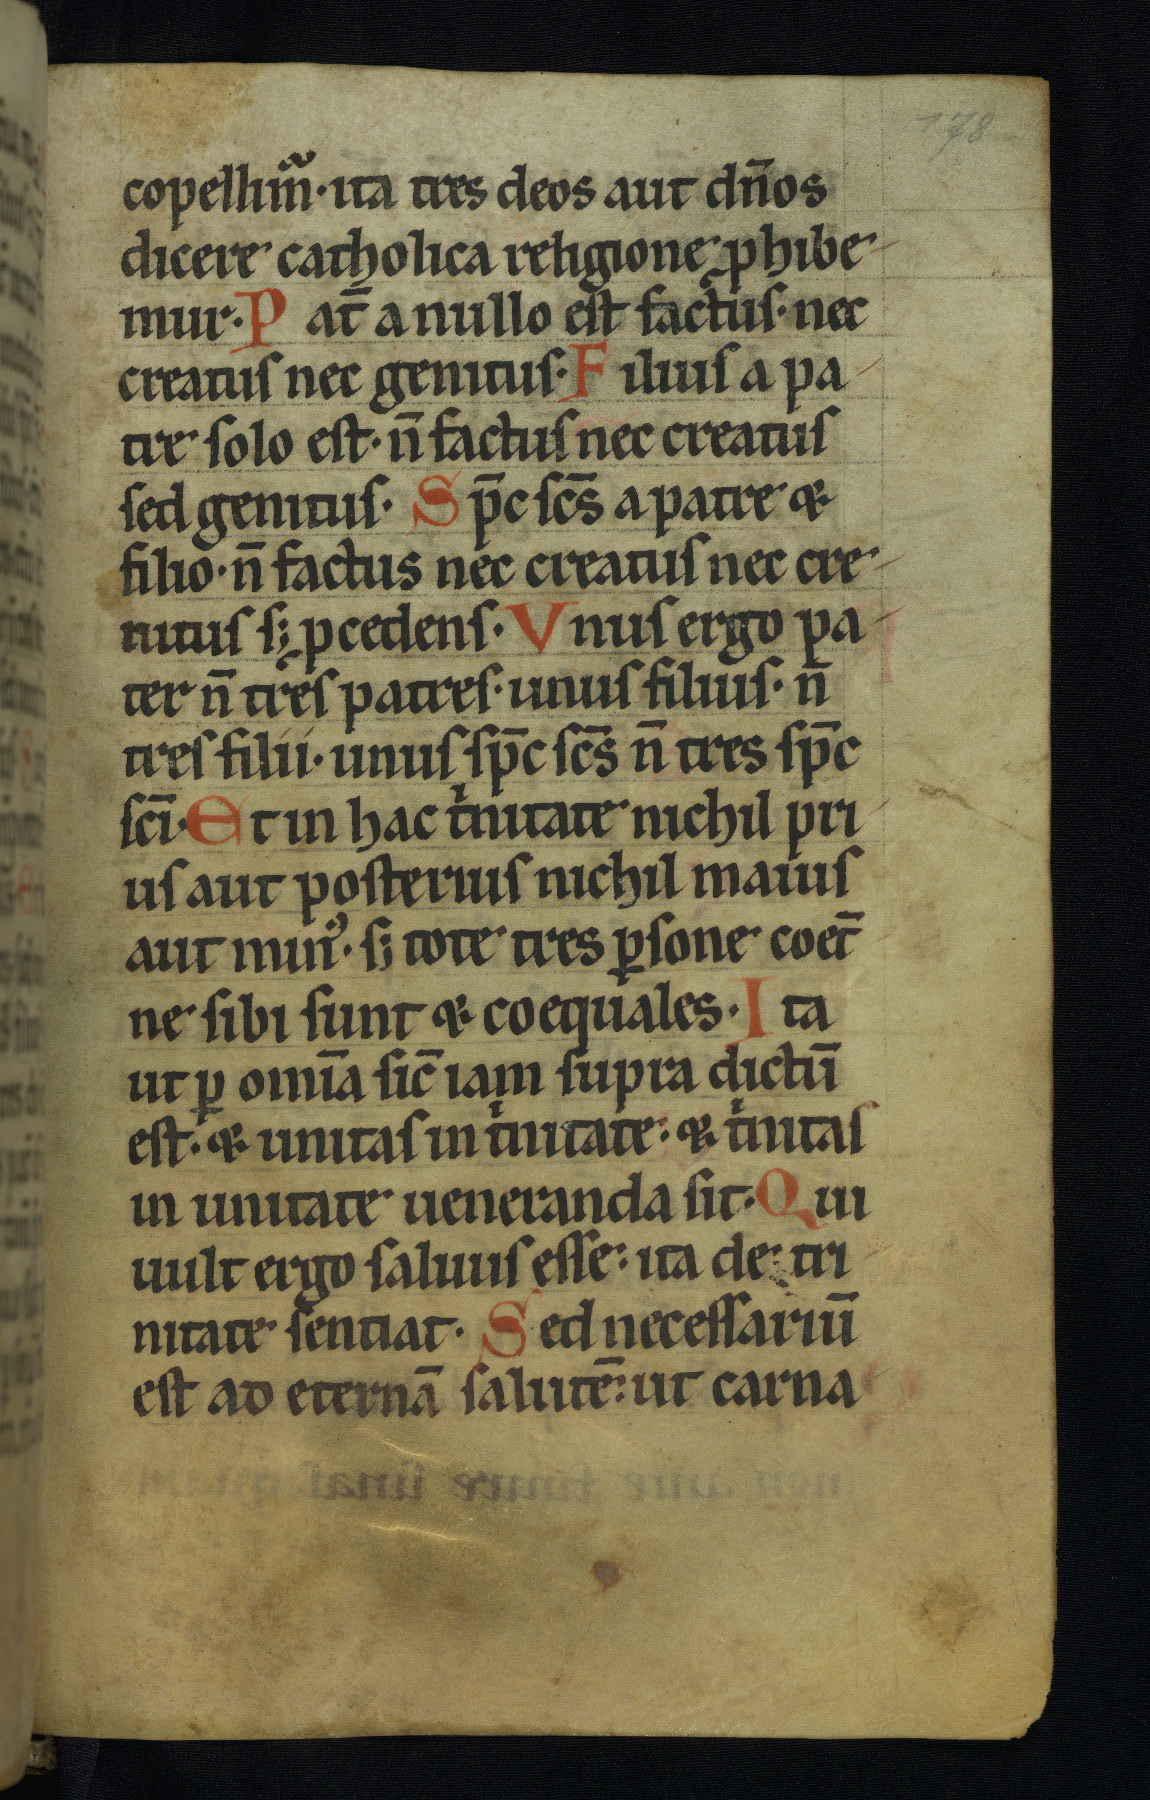 178
copellim̃ᷓ· ita tres deos aut dn̄os
dicere catholica religione ꝓhibe
mur· P at̄ a nullo est factus· nec
creatus nec genitus· F ilius a pa
tre solo est· n̄ factus nec creatus
sed genitus· S pc̄ scs̄ a patre &
filio· n̄ factus nec creatus nec cre
nitus sꝫ ꝓcedens· V nus ergo pa
ter n̄ tres patres· unus filius· n̄
tres filii· unus sp̄c scs̄ n̄ tres sp̄c
scī· E t in hac tⁱnitate nichil pri
us aut posterius nichil maius
aut minꝰ· sꝫ tote tres ꝑsone coet̄
ne sibi sunt & coequales· I ta
ut ꝑ omīa sic̄ iam supra dictū
est· & unitas in tⁱnitate· & tⁱnitas
in unitate ueneranda sit· Q ui
uult ergo saluus esse· ita de tri
nitate sentiat· S ed necessariū
est ad eternā salutē· ut carna